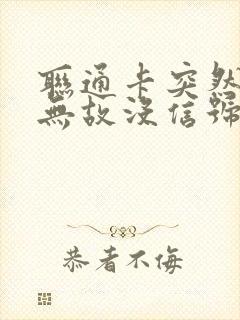 聯通卡突然
無故沒信號
恭者不侮